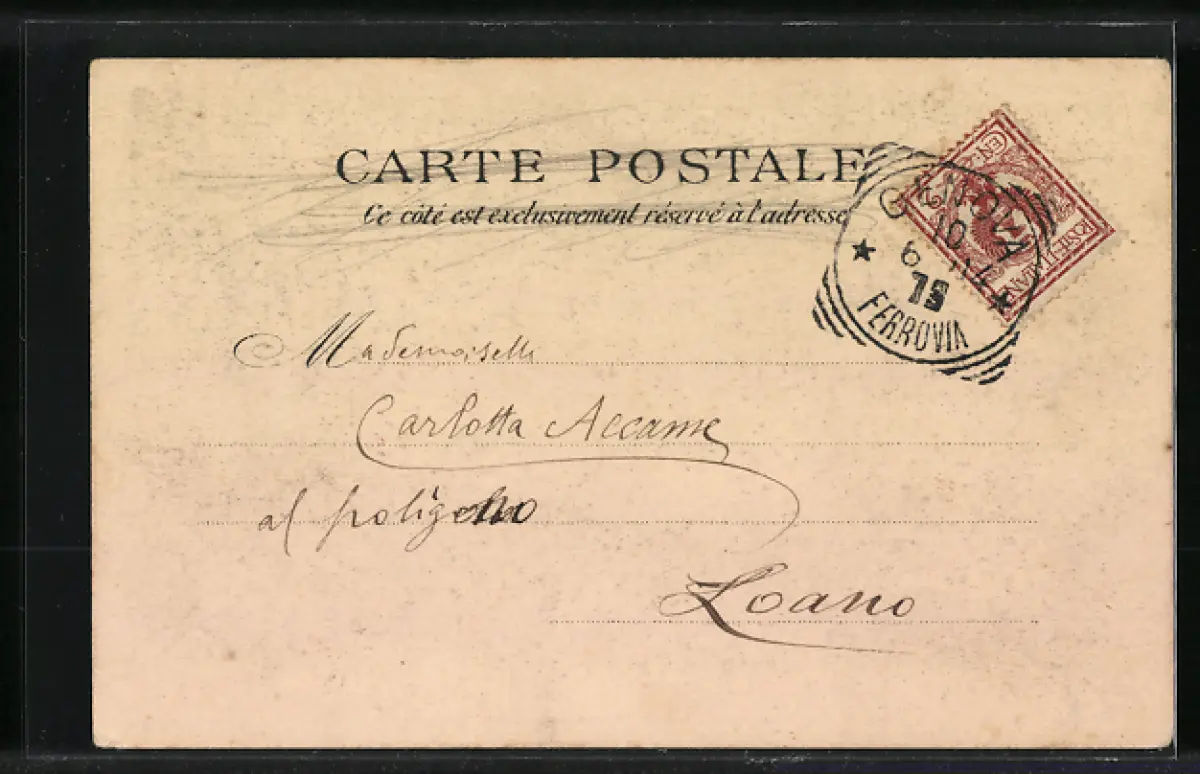 CARTE POSTALE
Ce côté est exclusivement réservé à l'adresse
GENOVA
10
6
FERROVIA
Mademoiselle
Carlotta Accame
al
Loano